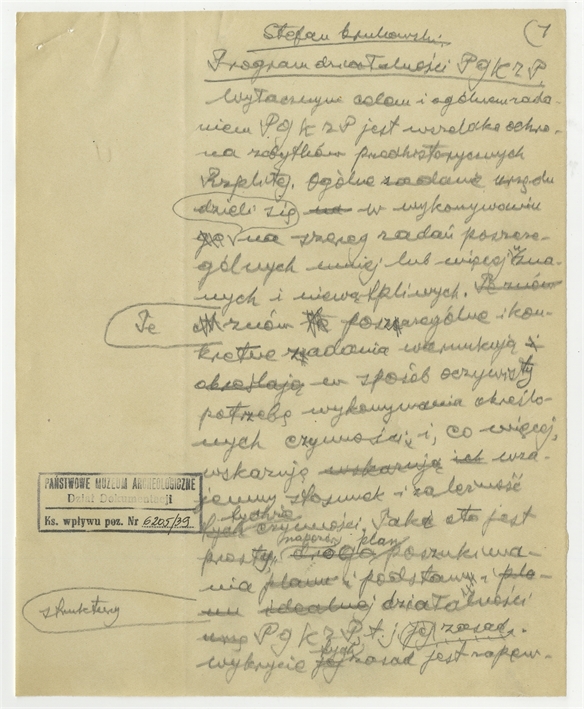 (1
Stefan Krukowski.
Program działalności PGKZP
Wyłącznym celem i ogólnem zada-
niem PGKZP jest wszelka ochro-
na zabytków przedhistorycznych
Rzplitej. Ogólne zadanie urzędu
dzieli się na w wykonywaniu
na szereg zadań poszcze-
gólnych mniej lub więcej zna-
nych i niewątpliwych. Te znów
Te znów poszczególne i kon-
kretne zadania warunkują i
określają w sposób oczywisty
potrzebę wykonywania określo-
nych czynności, i, co więcej,
wskazują wskazują ich wza-
jemny stosunek i zależność
tychże
tych czynności. Taka oto jest
plan
prosty, droga poszukiwa-
nia planu i podstawy, i pla-
struktury
nu idealnej działalności
PGKZP t.j. jej zasad.
wykrycie tych zasad jest zapew-
PAŃSTWOWE MUZEUM ARCHEOLOGICZNE
Dział Dokumentacji
Ks. wpływu poz. Nr 6205/39